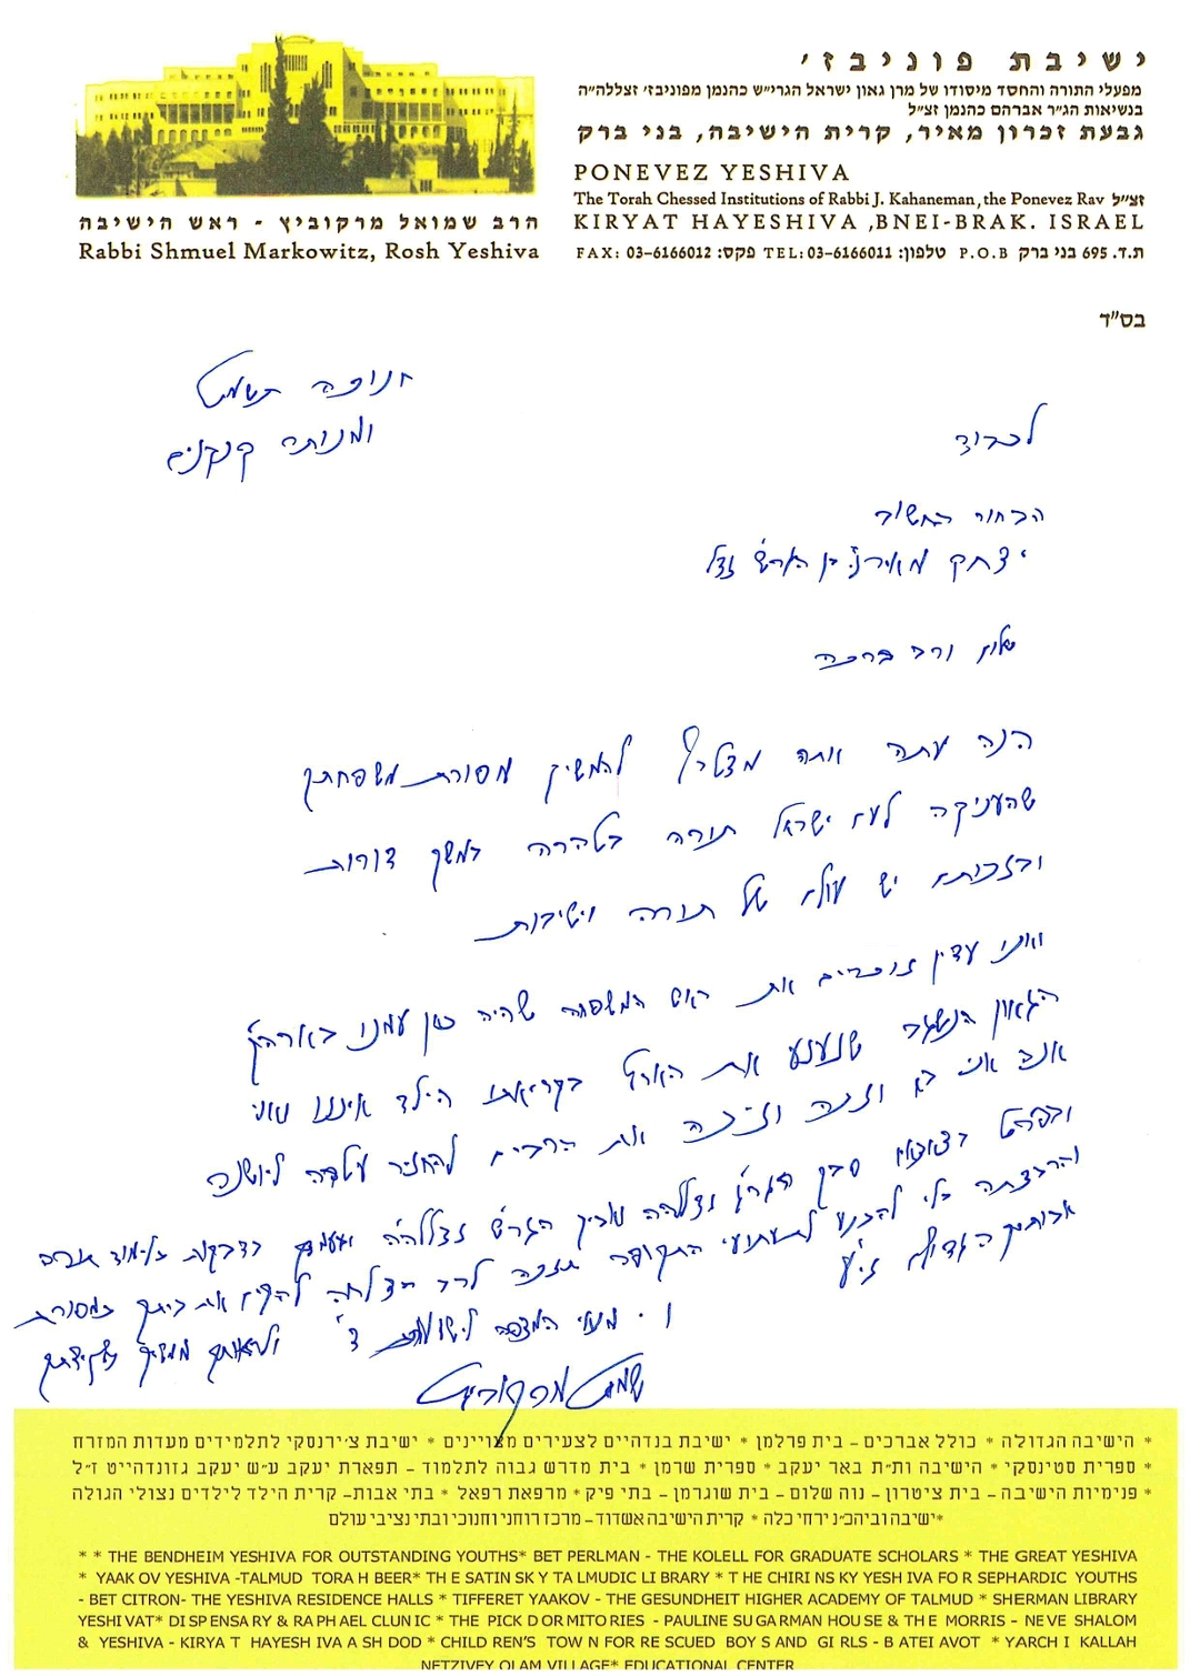 ישיבת פוניבז'
מפעלי התורה והחסד מיסודו של מרן גאון ישראל הגרי"ש כהנמן מפוניבז' זצללה"ה
בנשיאות הג"ר אברהם כהנמן זצ"ל
גבעת זכרון מאיר, קרית הישיבה, בני ברק
PONEVEZ YESHIVA
The Torah Chessed Institutions of Rabbi J. Kahaneman, the Ponevez Rav זצ"ל
KIRYAT HAYESHIVA ,BNEI-BRAK. ISRAEL
FAX: 03-6166012 פקס: TEL: 03-6166011 טלפון: P.O.B ת.ד. 695 בני ברק
הרב שמואל מרקוביץ - ראש הישיבה
Rabbi Shmuel Markowitz, Rosh Yeshiva
בס"ד
חנוכה תשמט
ומנותר קנקנים
לכבוד
הבחור החשוב
יצחק מאיר בן הגרש זצל
שלום ורב ברכה
הנה עתה אתה מצטרף להמשיך מסורת משפחתך
שהעניקה לעם ישראל תורה בטהרה במשך דורות
ובזכותם יש עולם של תורה וישיבות
אנו עדין זוכרים את ראש המשפחה שהיה כאן עמנו בארהק
הגאון הנשגב שנענע את הארץ בקריאתו הילד איננו ואני
אנה אני בא וזכה וזיכה את הרבים להחזיר עטרה ליושנה
ובפרט בצאצאיו סבך הגר זצללהה ואביך הגרש זצללה"ה ועמך בדבקות בלימוד
והרבצתה בלי להכנע לתעתועי התקופה תזכה לרב הצלחה להקים את ביתך כמסורת
אבותיך הגדולים זי"ע
המצפה לישועת ד'
שמואל מרקוביץ
* הישיבה הגדולה * כולל אברכים - בית פרלמן * ישיבת בנדהיים לצעירים מצויינים * ישיבת צ'ירנסקי לתלמידים מעדות המזרח
* ספרית סטינסקי * הישיבה ות"ת באר יעקב * ספרית שרמן * בית מדרש גבוה לתלמוד - תפארת יעקב ע"ש יעקב גזונדהייט ז"ל
* פנימיות הישיבה - בית ציטרון - נוה שלום - בית שוגרמן - בתי פיק * מרפאת רפאל * בתי אבות - קרית הילד לילדים נצולי הגולה
*ישיבה וביהכ"נ ירחי כלה * קרית הישיבה אשדוד - מרכז רוחני וחנוכי ובתי נציבי עולם
* * THE BENDHEIM YESHIVA FOR OUTSTANDING YOUTHS* BET PERLMAN - THE KOLELL FOR GRADUATE SCHOLARS * THE GREAT YESHIVA
* YAAKOV YESHIVA -TALMUD TORAH BEER* THE SATINSKY TALMUDIC LIBRARY * THE CHIRINSKY YESHIVA FOR SEPHARDIC YOUTHS
- BET CITRON- THE YESHIVA RESIDENCE HALLS * TIFFERET YAAKOV - THE GESUNDHEIT HIGHER ACADEMY OF TALMUD * SHERMAN LIBRARY
YESHIVAT* DISPENSARY & RAPHAEL CLUNIC * THE PICK DORMITORIES - PAULINE SUGARMAN HOUSE & THE MORRIS - NEVE SHALOM
& YESHIVA - KIRYAT HAYESHIVA ASHDOD * CHILDREN'S TOWN FOR RESCUED BOYS AND GIRLS - BATEI AVOT * YARCHI KALLAH
NETZIVEY OLAM VILLAGE* EDUCATIONAL CENTER